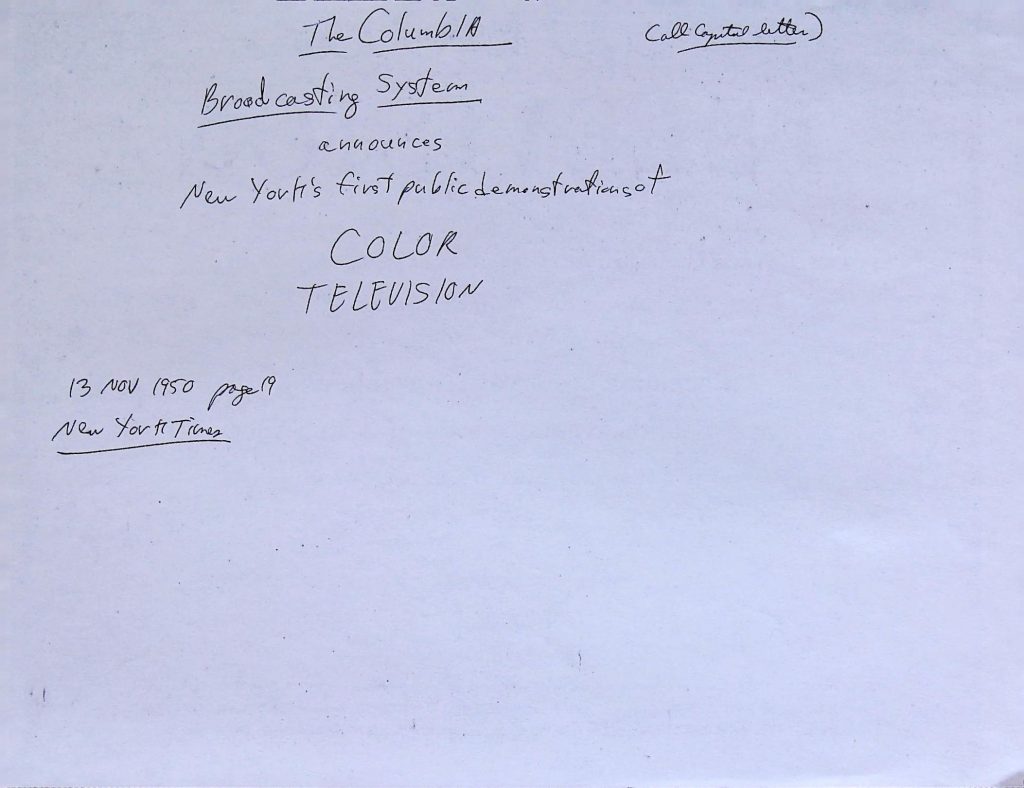 The ColumbIA (all capital letter)
Broadcasting System
announces
New York's first public demonstrations of
COLOR
TELEVISION
13 NOV 1950 page 19
New York Times